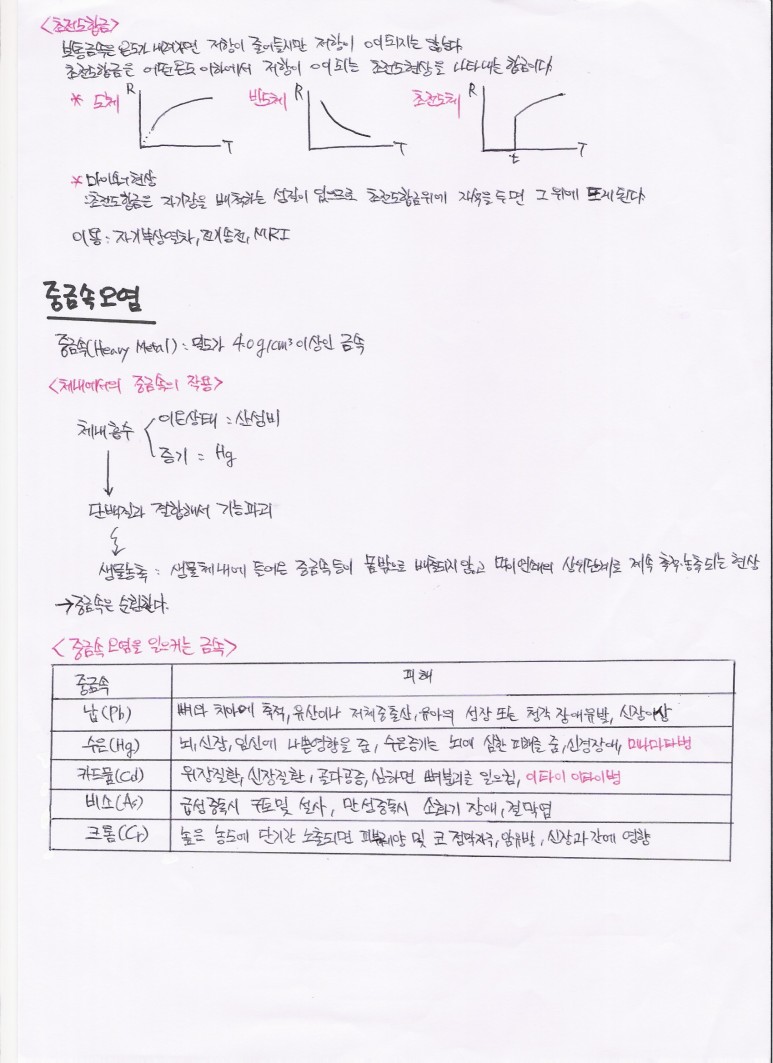 <초전도합금>
보통금속은 온도가 내려가면 저항이 줄어들지만 저항이 0이 되지는 않는다
초전도합금은 어떤온도 이하에서 저항이 0이 되는 초전도현상을 나타내는 합금이다
* 도체 R T 반도체 R T 초전도체 R T
t
* 마이스너 현상
: 초전도합금은 자기장을 배척하는 성질이 있으므로 초전도합금위에 자석을 두면 그 위에 뜨게된다
이용 : 자기부상열차, 전기송전, MRI
중금속오염
중금속(Heavy Metal) : 밀도가 4.0g/cm³이상인 금속
<체내에서의 중금속의 작용>
체내흡수 이온상태 : 산성비
증기 : Hg
단백질과 결합해서 기능파괴
생물농축 : 생물체내에 들어온 중금속등이 몸밖으로 배출되지 않고 먹이연쇄의 상위단계로 계속 축적·농축되는 현상
→중금속은 순환한다.
<중금속 오염을 일으키는 금속>
중금속 피해
납(Pb) 뼈와 치아에 축적, 유산이나 저체중출산, 유아의 성장 또는 청각 장애유발, 신장이상
수은(Hg) 뇌,신장,임신에 나쁜영향을 줌, 수은증기는 뇌에 심한 피해를 줌,신경장애, 미나마타병
카드뮴(Cd) 위장질환, 신장질환, 골다공증, 심하면 뼈붕괴를 일으킴, 이타이 이타이병
비소(As) 급성중독시 구토및 설사, 만성중독시 소화기 장애, 결막염
크롬(Cr) 높은 농도에 단기간 노출되면 피부궤양 및 코 점막자극, 암유발, 신장과간에 영향